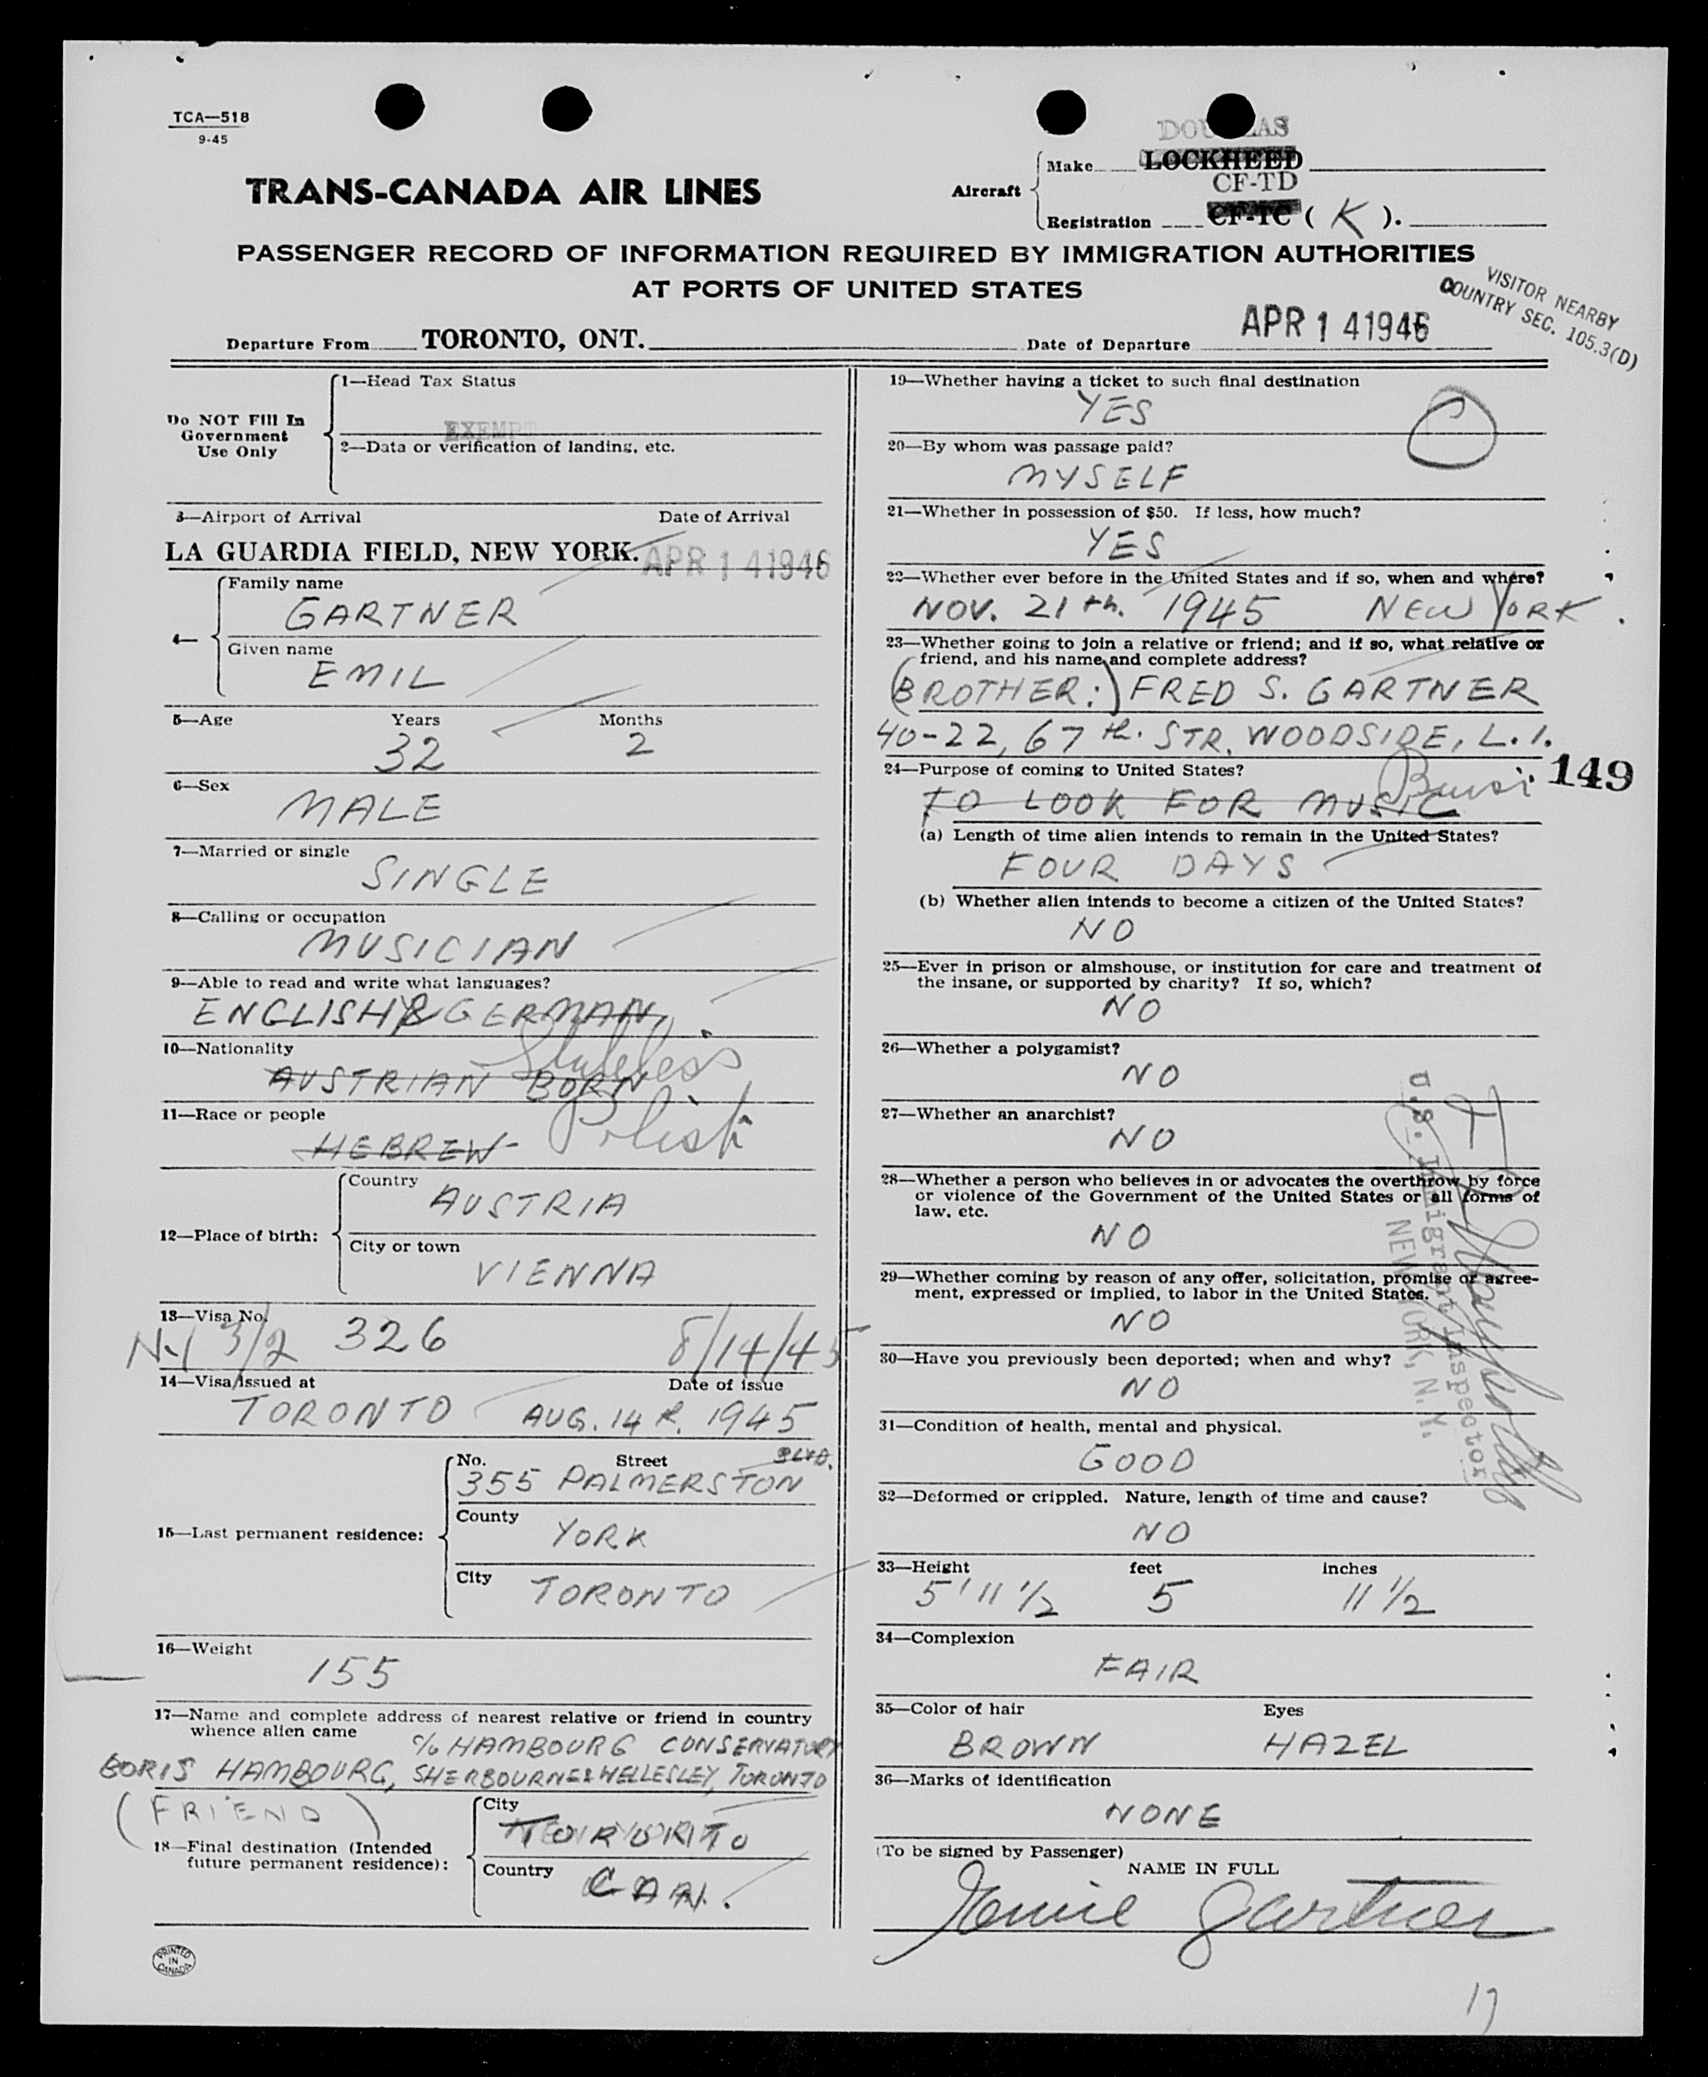 TCA—518
9-45
DOUGLAS
Make LOCKHEED
Aircraft
CF-TD
Registration CF-TC ( K ).
TRANS-CANADA AIR LINES
PASSENGER RECORD OF INFORMATION REQUIRED BY IMMIGRATION AUTHORITIES
AT PORTS OF UNITED STATES
VISITOR NEARBY
COUNTRY SEC. 105.3(D)
Departure From TORONTO, ONT. Date of Departure APR 14 1946
Do NOT Fill In
Government
Use Only
1—Head Tax Status
EXEMPT
2—Data or verification of landing, etc.
3—Airport of Arrival Date of Arrival
LA GUARDIA FIELD, NEW YORK. APR 14 1946
4—
Family name
GARTNER
Given name
EMIL
5—Age Years Months
32 2
6—Sex
MALE
7—Married or single
SINGLE
8—Calling or occupation
MUSICIAN
9—Able to read and write what languages?
ENGLISH & GERMAN
10—Nationality
AUSTRIAN BORN Stateless
11—Race or people
HEBREW Polish
12—Place of birth:
Country
AUSTRIA
City or town
VIENNA
13—Visa No.
3/2 326 8/14/45
14—Visa Issued at Date of issue
TORONTO AUG. 14th. 1945
15—Last permanent residence:
No. Street BLVD.
355 PALMERSTON
County
YORK
City
TORONTO
16—Weight
155
17—Name and complete address of nearest relative or friend in country
whence alien came
c/o HAMBOURG CONSERVATORY
BORIS HAMBOURG, SHERBOURNE & WELLESLEY, TORONTO
(FRIEND)
18—Final destination (Intended
future permanent residence):
City
TORONTO
Country
CAN.
PRINTED
IN
CANADA
19—Whether having a ticket to such final destination
YES
20—By whom was passage paid?
MYSELF
21—Whether in possession of $50. If less, how much?
YES
22—Whether ever before in the United States and if so, when and where?
NOV. 21th. 1945 NEW YORK.
23—Whether going to join a relative or friend; and if so, what relative or
friend, and his name and complete address?
(BROTHER:) FRED S. GARTNER
40-22, 67th. STR. WOODSIDE, L.I.
24—Purpose of coming to United States?
TO LOOK FOR MUSIC
149
(a) Length of time alien intends to remain in the United States?
FOUR DAYS
(b) Whether alien intends to become a citizen of the United States?
NO
25—Ever in prison or almshouse, or institution for care and treatment of
the insane, or supported by charity? If so, which?
NO
26—Whether a polygamist?
NO
27—Whether an anarchist?
NO
28—Whether a person who believes in or advocates the overthrow by force
or violence of the Government of the United States or all forms of
law, etc.
NO
29—Whether coming by reason of any offer, solicitation, promise or agree-
ment, expressed or implied, to labor in the United States.
NO
30—Have you previously been deported; when and why?
NO
U.S. Immigrant Inspector
NEW YORK, N.Y.
31—Condition of health, mental and physical.
GOOD
32—Deformed or crippled. Nature, length of time and cause?
NO
33—Height feet inches
5' 11 1/2 5 11 1/2
34—Complexion
FAIR
35—Color of hair Eyes
BROWN HAZEL
36—Marks of identification
NONE
(To be signed by Passenger)
NAME IN FULL
Gartner
17